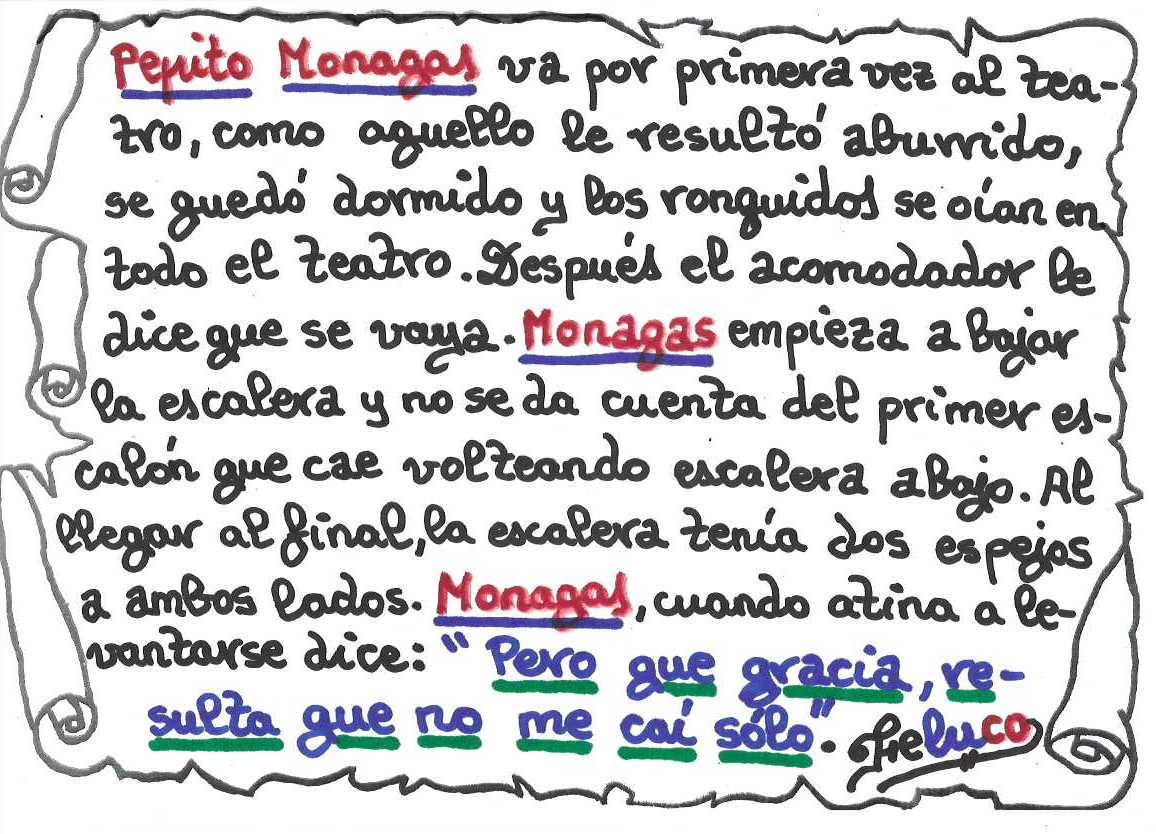 Pepito Monagas va por primera vez al tea-
tro, como aquello le resultó aburrido,
se quedó dormido y los ronquidos se oían en
todo el teatro. Después el acomodador le
dice que se vaya. Monagas empieza a bajar
la escalera y no se da cuenta del primer es-
calón que cae volteando escalera abajo. Al
llegar al final, la escalera tenía dos espejos
a ambos lados. Monagas, cuando atina a le-
vantarse dice: "Pero que gracia, re-
sulta que no me caí sólo". Feluco